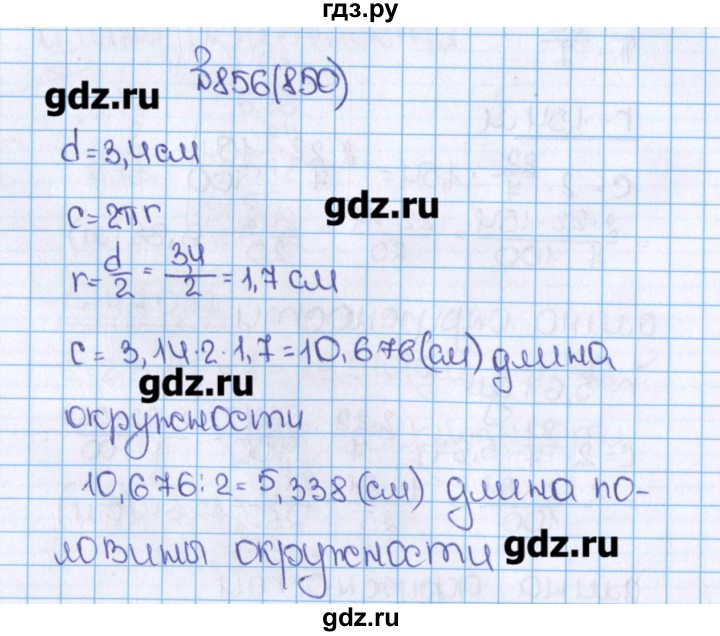 гдз.ру
№856(850)
gdz.ru
d=3,4см
c=2πr
gdz.ru
r=d/2=3,4/2=1,7 см
c= 3,14·2·1,7=10,676(см) длина
gdz.ru
окружности
10,676:2=5,338(см) длина по-
ловины окружности
gdz.ru
gdz.ru